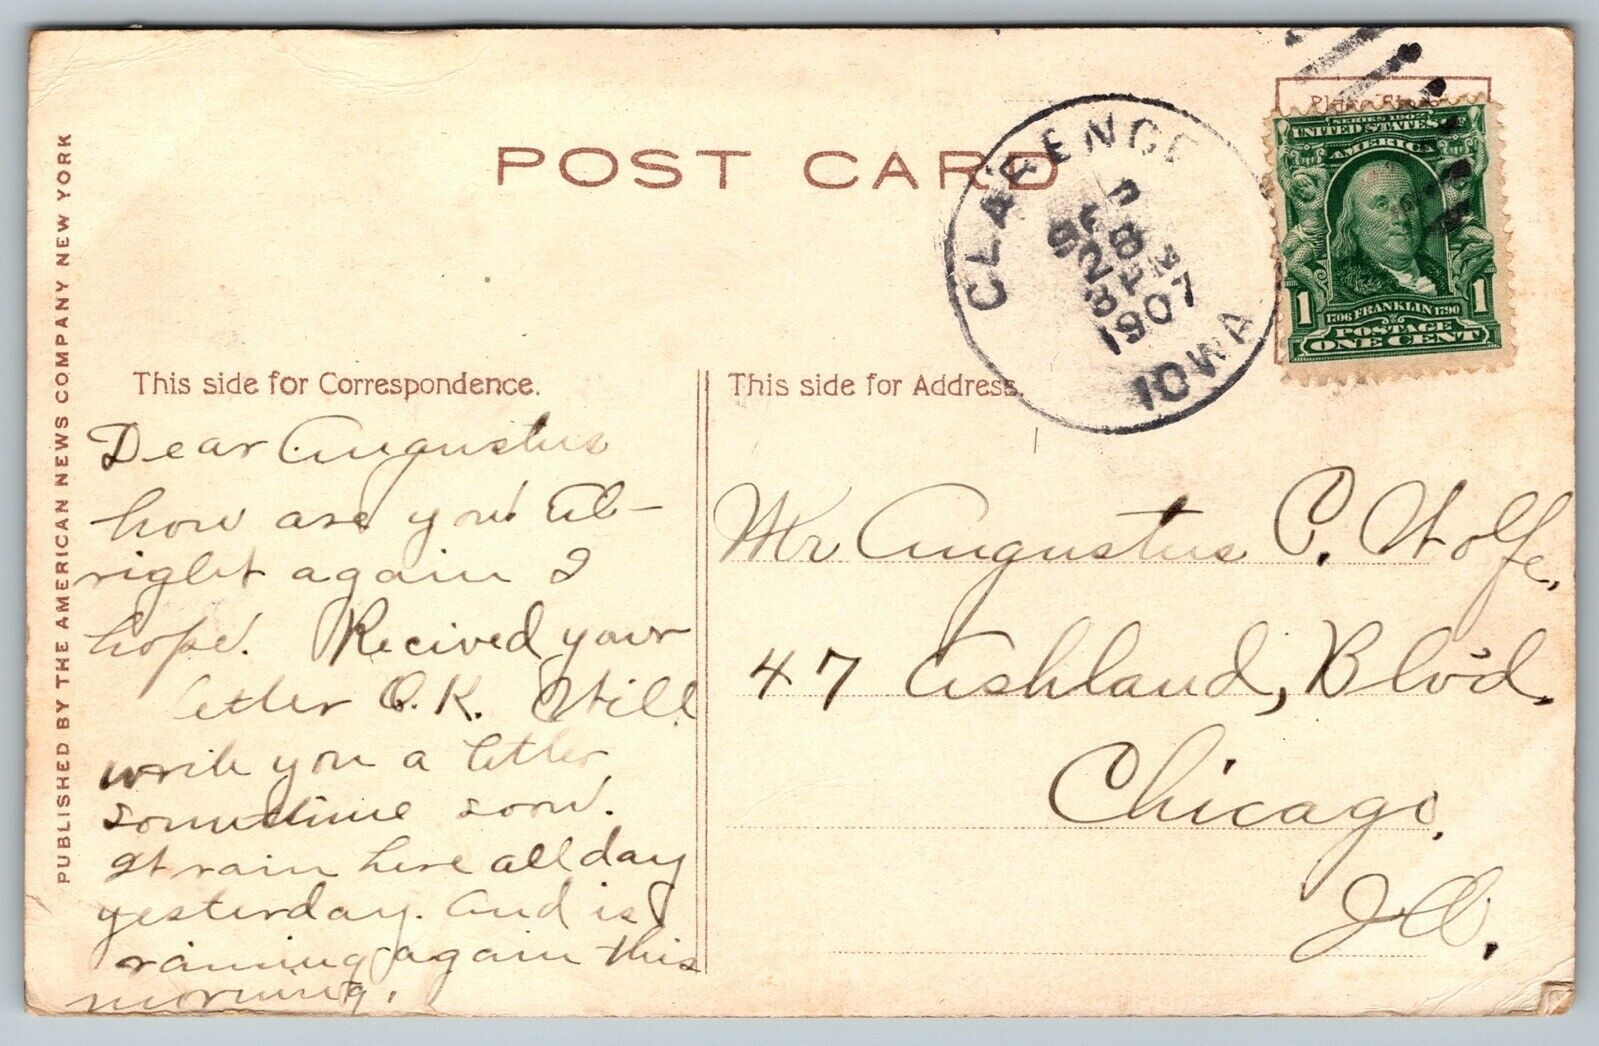 POST CARD
PUBLISHED BY THE AMERICAN NEWS COMPANY NEW YORK
CLARENCE
1907
IOWA
SERIES 1902
UNITED STATES OF
AMERICA
1
1706 FRANKLIN 1790
POSTAGE
ONE CENT
This side for Correspondence.
Dear Augustus
how are you? All-
right again I
hope. Recived your
letter O.K. Will
write you a letter
sometime soon.
It rain here all day
yesterday. And is
raining again this
morning.
This side for Address.
Mr Augustus C. Wolfe,
47 Ashland, Blvd,
Chicago,
Ill,